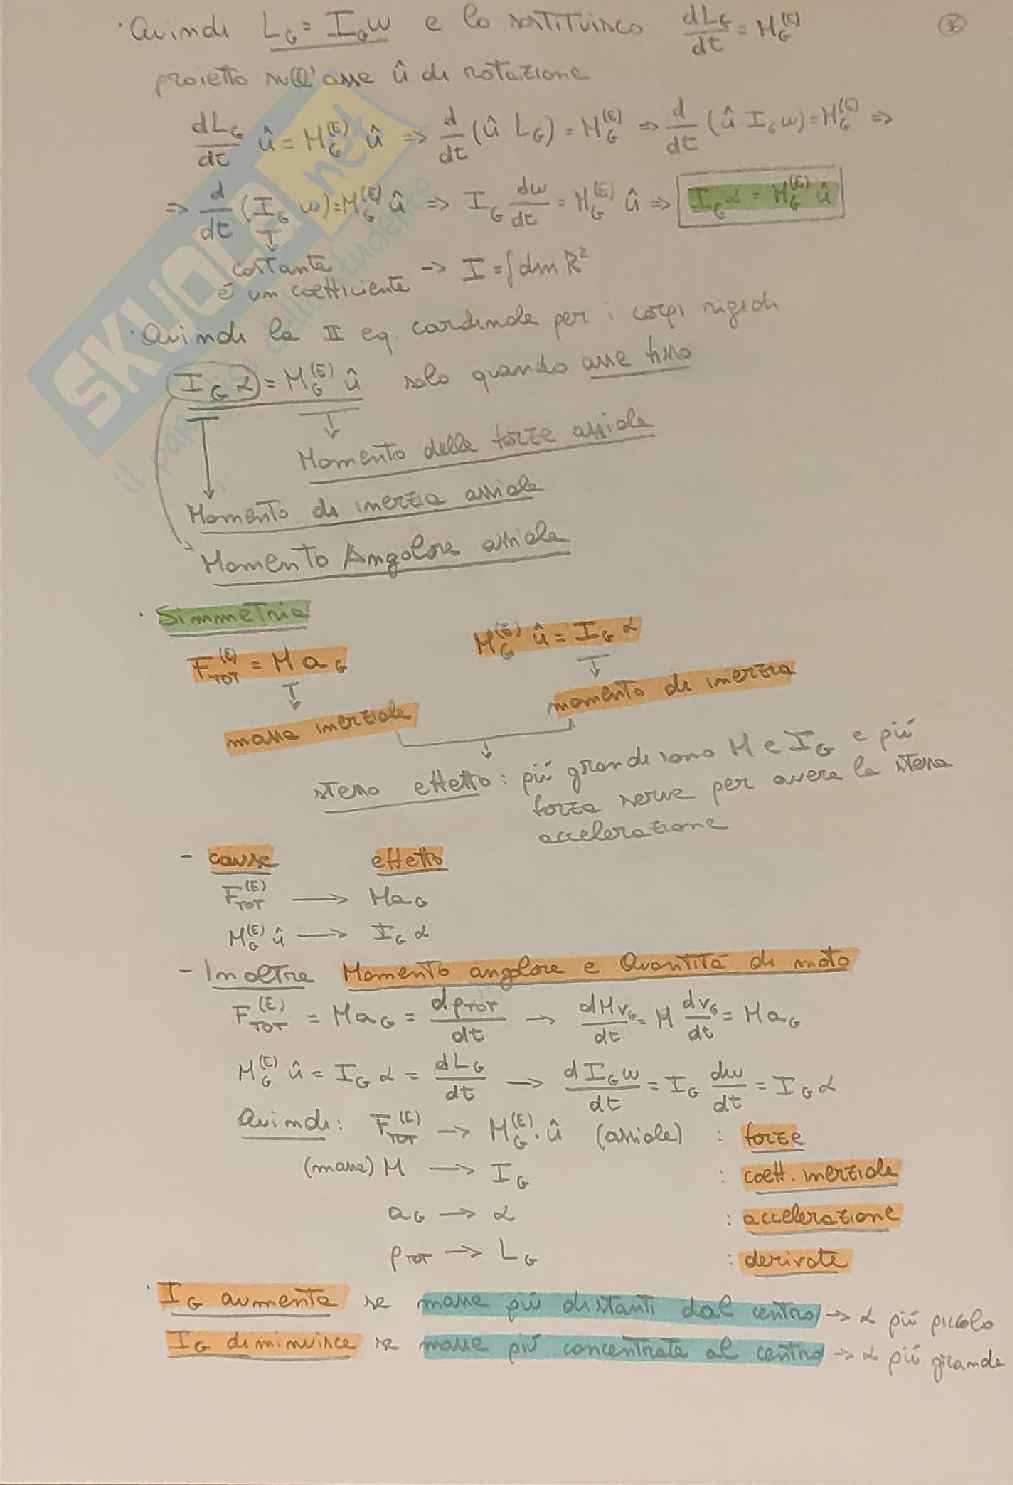 · Quindi L_G = I_G ω e lo sostituisco dL_G/dt = M_G^(E)
proietto sull'asse û di rotazione
dL_G/dt û = M_G^(E) û ⇒ d/dt (û L_G) = M_G^(E) ⇒ d/dt (û I_G ω) = M_G^(E) ⇒
⇒ d/dt (I_G ω) = M_G^(E) û ⇒ I_G dω/dt = M_G^(E) û ⇒ I_G α = M_G^(E) û
costante
è un coefficiente → I = ∫ dm R²
· Quindi la II eq. cardinale per i corpi rigidi
I_G α = M_G^(E) û solo quando asse fisso
Momento delle forze assiale
Momento di inerzia assiale
Momento Angolare assiale
· Simmetria
F_TOT^(E) = M a_G M_G^(E) û = I_G α
massa inerziale momento di inerzia
stesso effetto: più grandi sono M e I_G e più
forza serve per avere la stessa
accelerazione
- cause effetto
F_TOT^(E) → M a_G
M_G^(E) û → I_G α
- Inoltre Momento angolare e Quantità di moto
F_TOT^(E) = M a_G = dp_TOT/dt → dM v_G/dt = M dv_G/dt = M a_G
M_G^(E) û = I_G α = dL_G/dt → d I_G ω/dt = I_G dω/dt = I_G α
Quindi: F_TOT^(E) → M_G^(E) · û (assiale) : forze
(massa) M → I_G : coeff. inerziale
a_G → α : accelerazione
p_TOT → L_G : derivate
· I_G aumenta se masse più distanti dal centro → α più piccolo
I_G diminuisce se masse più concentrate al centro → α più grande
SKUOLA.net